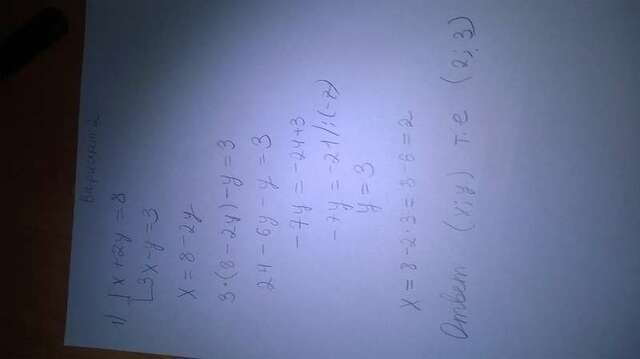 Вариант 2
1) { x + 2y = 8
3x - y = 3
x = 8 - 2y
3 · (8 - 2y) - y = 3
24 - 6y - y = 3
-7y = -24 + 3
-7y = -21 / : (-7)
y = 3
x = 8 - 2 · 3 = 8 - 6 = 2
Ответ (x; y) т.е (2; 3)